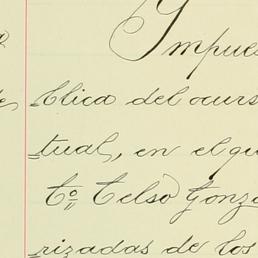 Impues
blica del ocurs
tual, en el qu
Cº Celso Gonza
rizadas de los